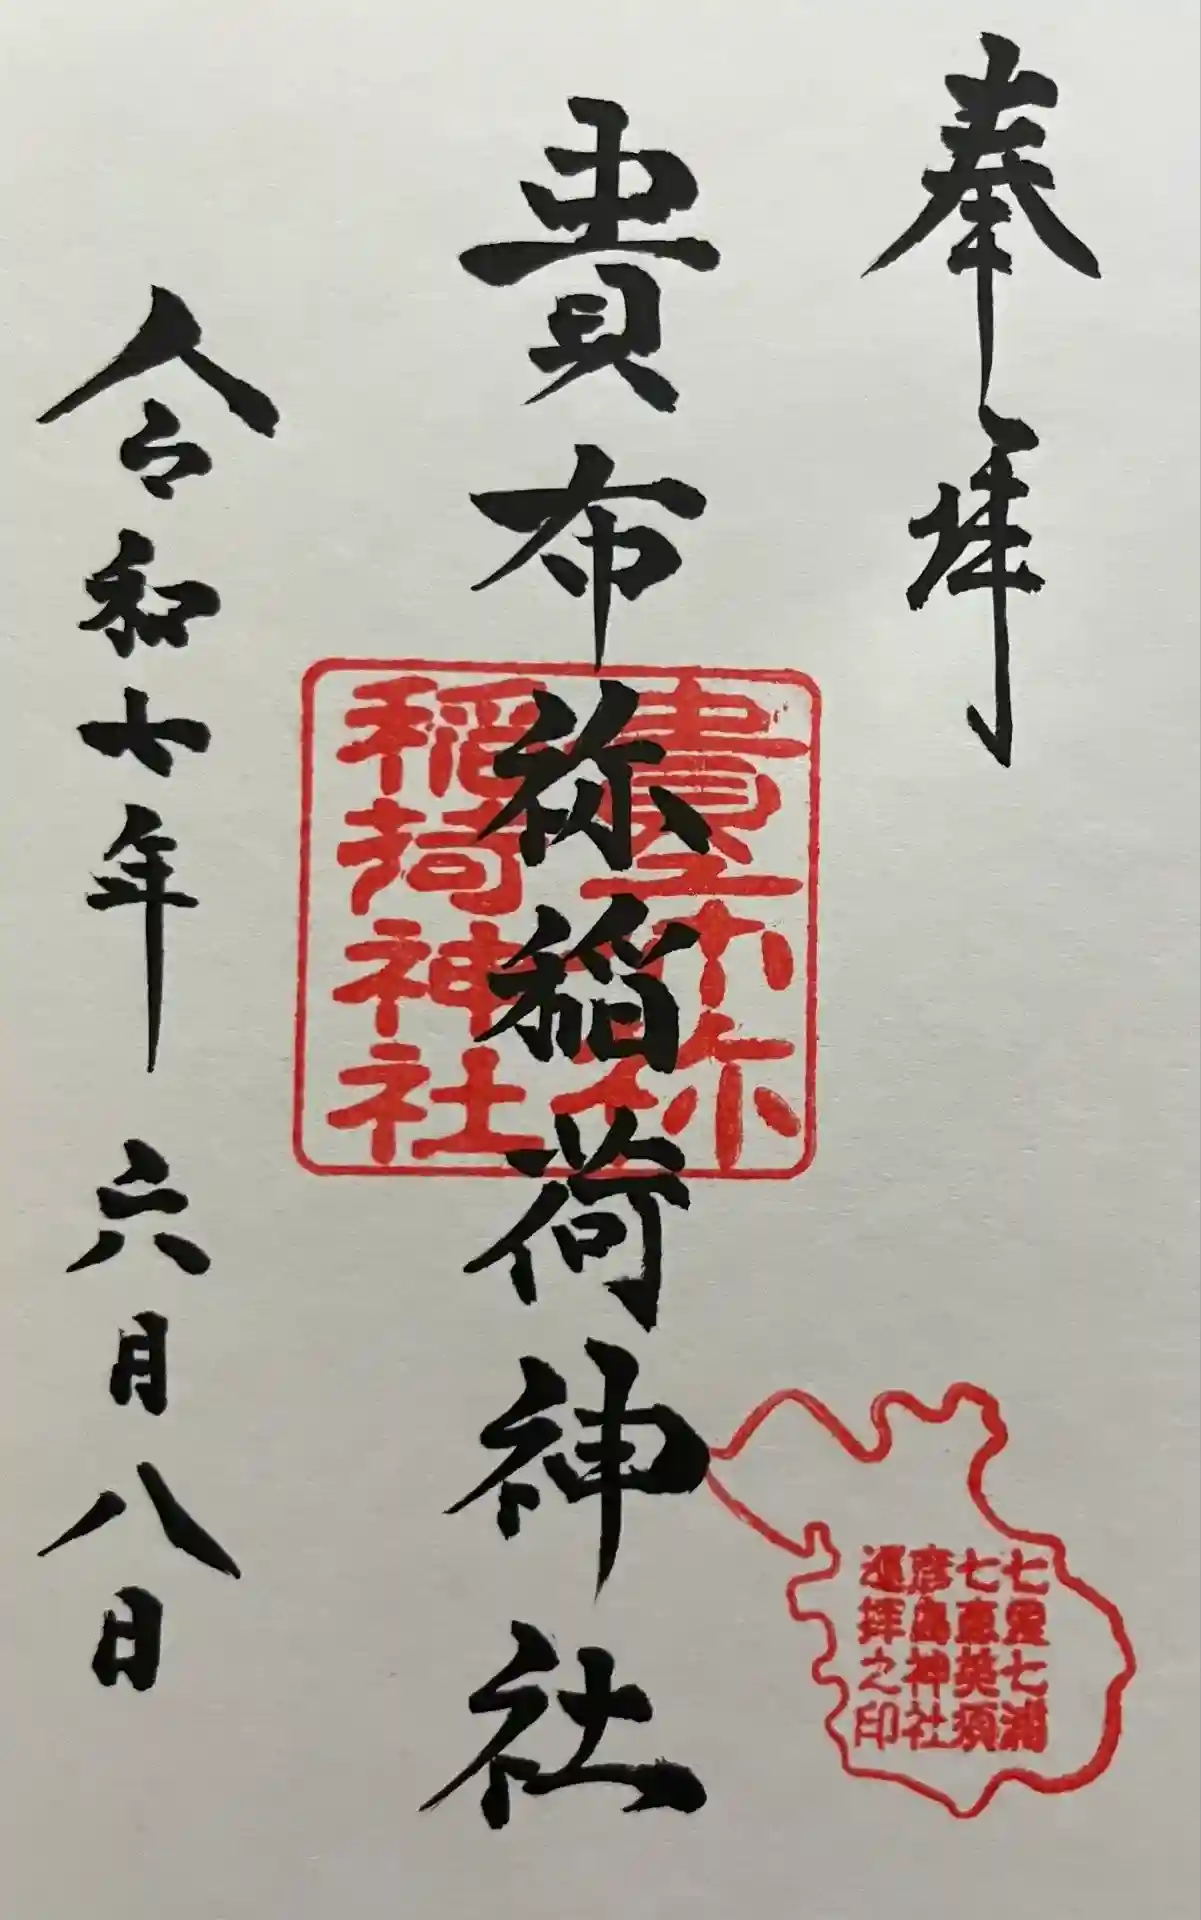 奉拝
貴布祢稲荷神社
令和七年 六月八日
貴布祢
稲荷神社
七霊七浦
七恵美須
彦島神社
遥拝之印